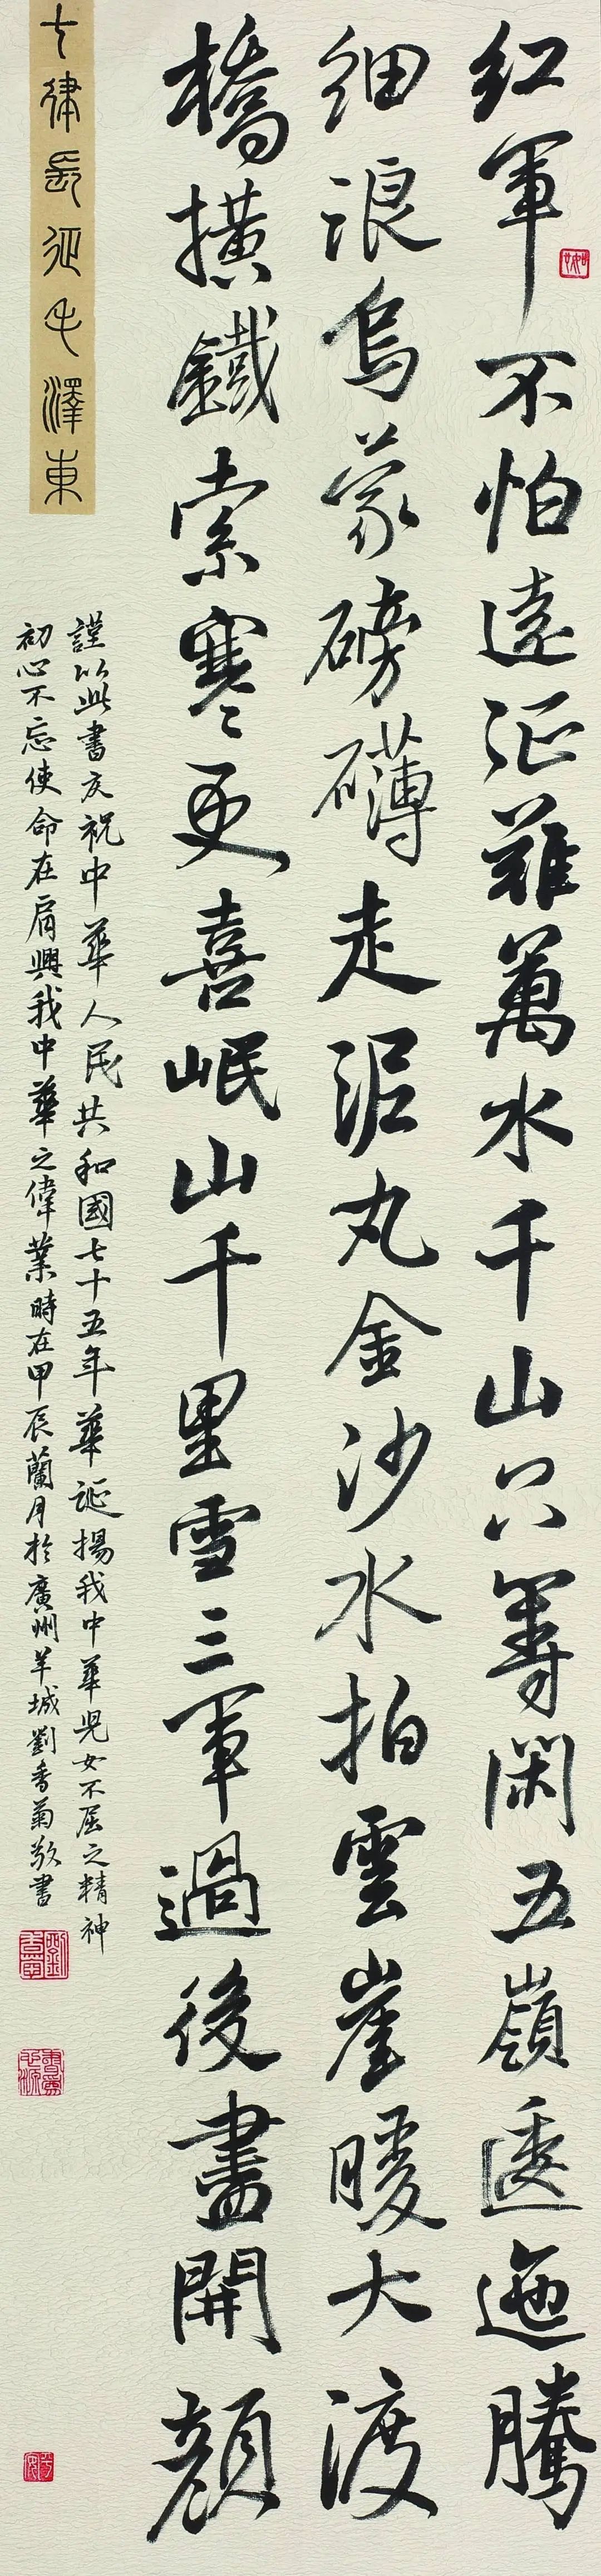 紅軍不怕遠征難萬水千山只等閑五嶺逶迤騰
細浪烏蒙磅礴走泥丸金沙水拍雲崖暖大渡
橋横鐵索寒更喜岷山千里雪三軍過後盡開顔
七律長征毛澤東
謹以此書慶祝中華人民共和國七十五年華誕揚我中華兒女不屈之精神
初心不忘使命在肩興我中華之偉業時在甲辰蘭月於廣州羊城劉香菊敬書